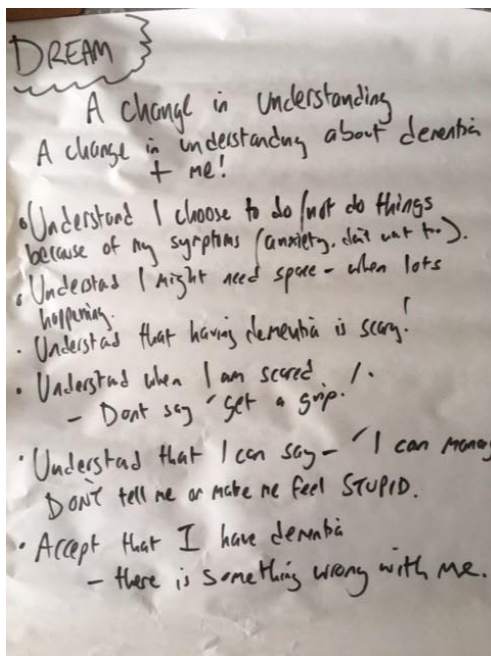 DREAM
A change in understanding
A change in understanding about dementia
+ me!
• Understand I choose to do / not do things
because of my symptoms (anxiety, don't want to).
• Understand I might need space - when lots
happening.
• Understand that having dementia is scary!
• Understand when I am scared
- Dont say 'Get a grip.'
• Understand that I can say - 'I can
DON'T tell me or make me feel STUPID.
• Accept that I have dementia
- there is something wrong with me.